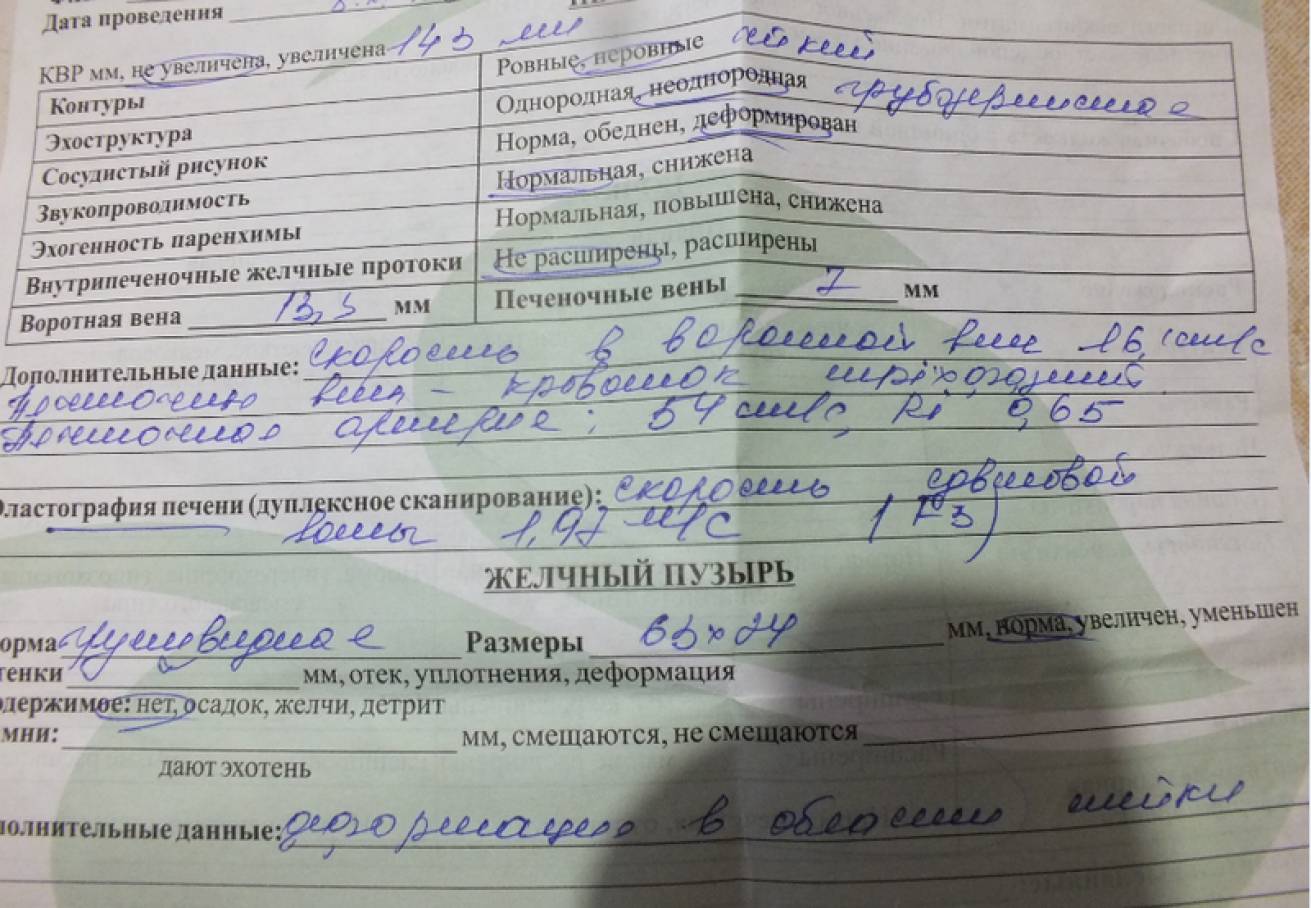 Дата проведения
КВР мм, не увеличена, увеличена 143 мм
Контуры Ровные, неровные
Эхоструктура Однородная, неоднородная грубозернистая
Сосудистый рисунок Норма, обеднен, деформирован
Звукопроводимость Нормальная, снижена
Эхогенность паренхимы Нормальная, повышена, снижена
Внутрипеченочные желчные протоки Не расширены, расширены
Воротная вена 13,5 мм Печеночные вены 7 мм
Дополнительные данные: скорость в воротной вене 16,1 cm/c
вена - кровоток трёхфазный
артерия: 54 cm/c, Ri 0,65
Эластография печени (дуплексное сканирование): скорость сдвиговой
волны 1,97 м/с (F3)
ЖЕЛЧНЫЙ ПУЗЫРЬ
орма грушевидная Размеры 63x24 мм, норма, увеличен, уменьшен
тенки мм, отек, уплотнения, деформация
одержимое: нет, осадок, желчи, детрит
мни: мм, смещаются, не смещаются
дают эхотень
полнительные данные: деформация в области шейки